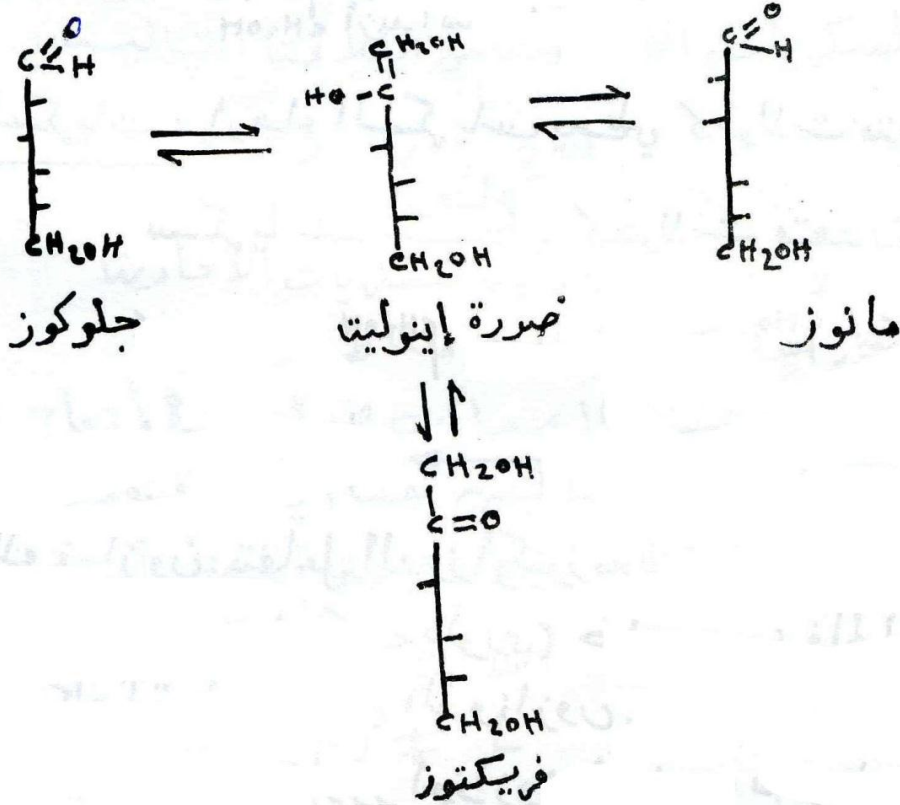 C=O H
CH2OH
جلوكوز
CH2OH
HO-C
CH2OH
صورة إينوليتا
C=O H
CH2OH
مانوز
CH2OH
C=O
CH2OH
فريكتوز